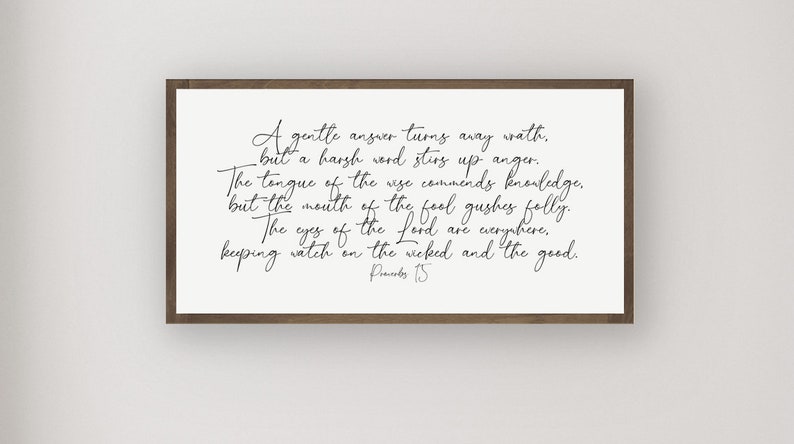 A gentle answer turns away wrath,
but a harsh word stirs up anger.
The tongue of the wise commends knowledge,
but the mouth of the fool gushes folly.
The eyes of the Lord are everywhere,
keeping watch on the wicked and the good.
Proverbs 15